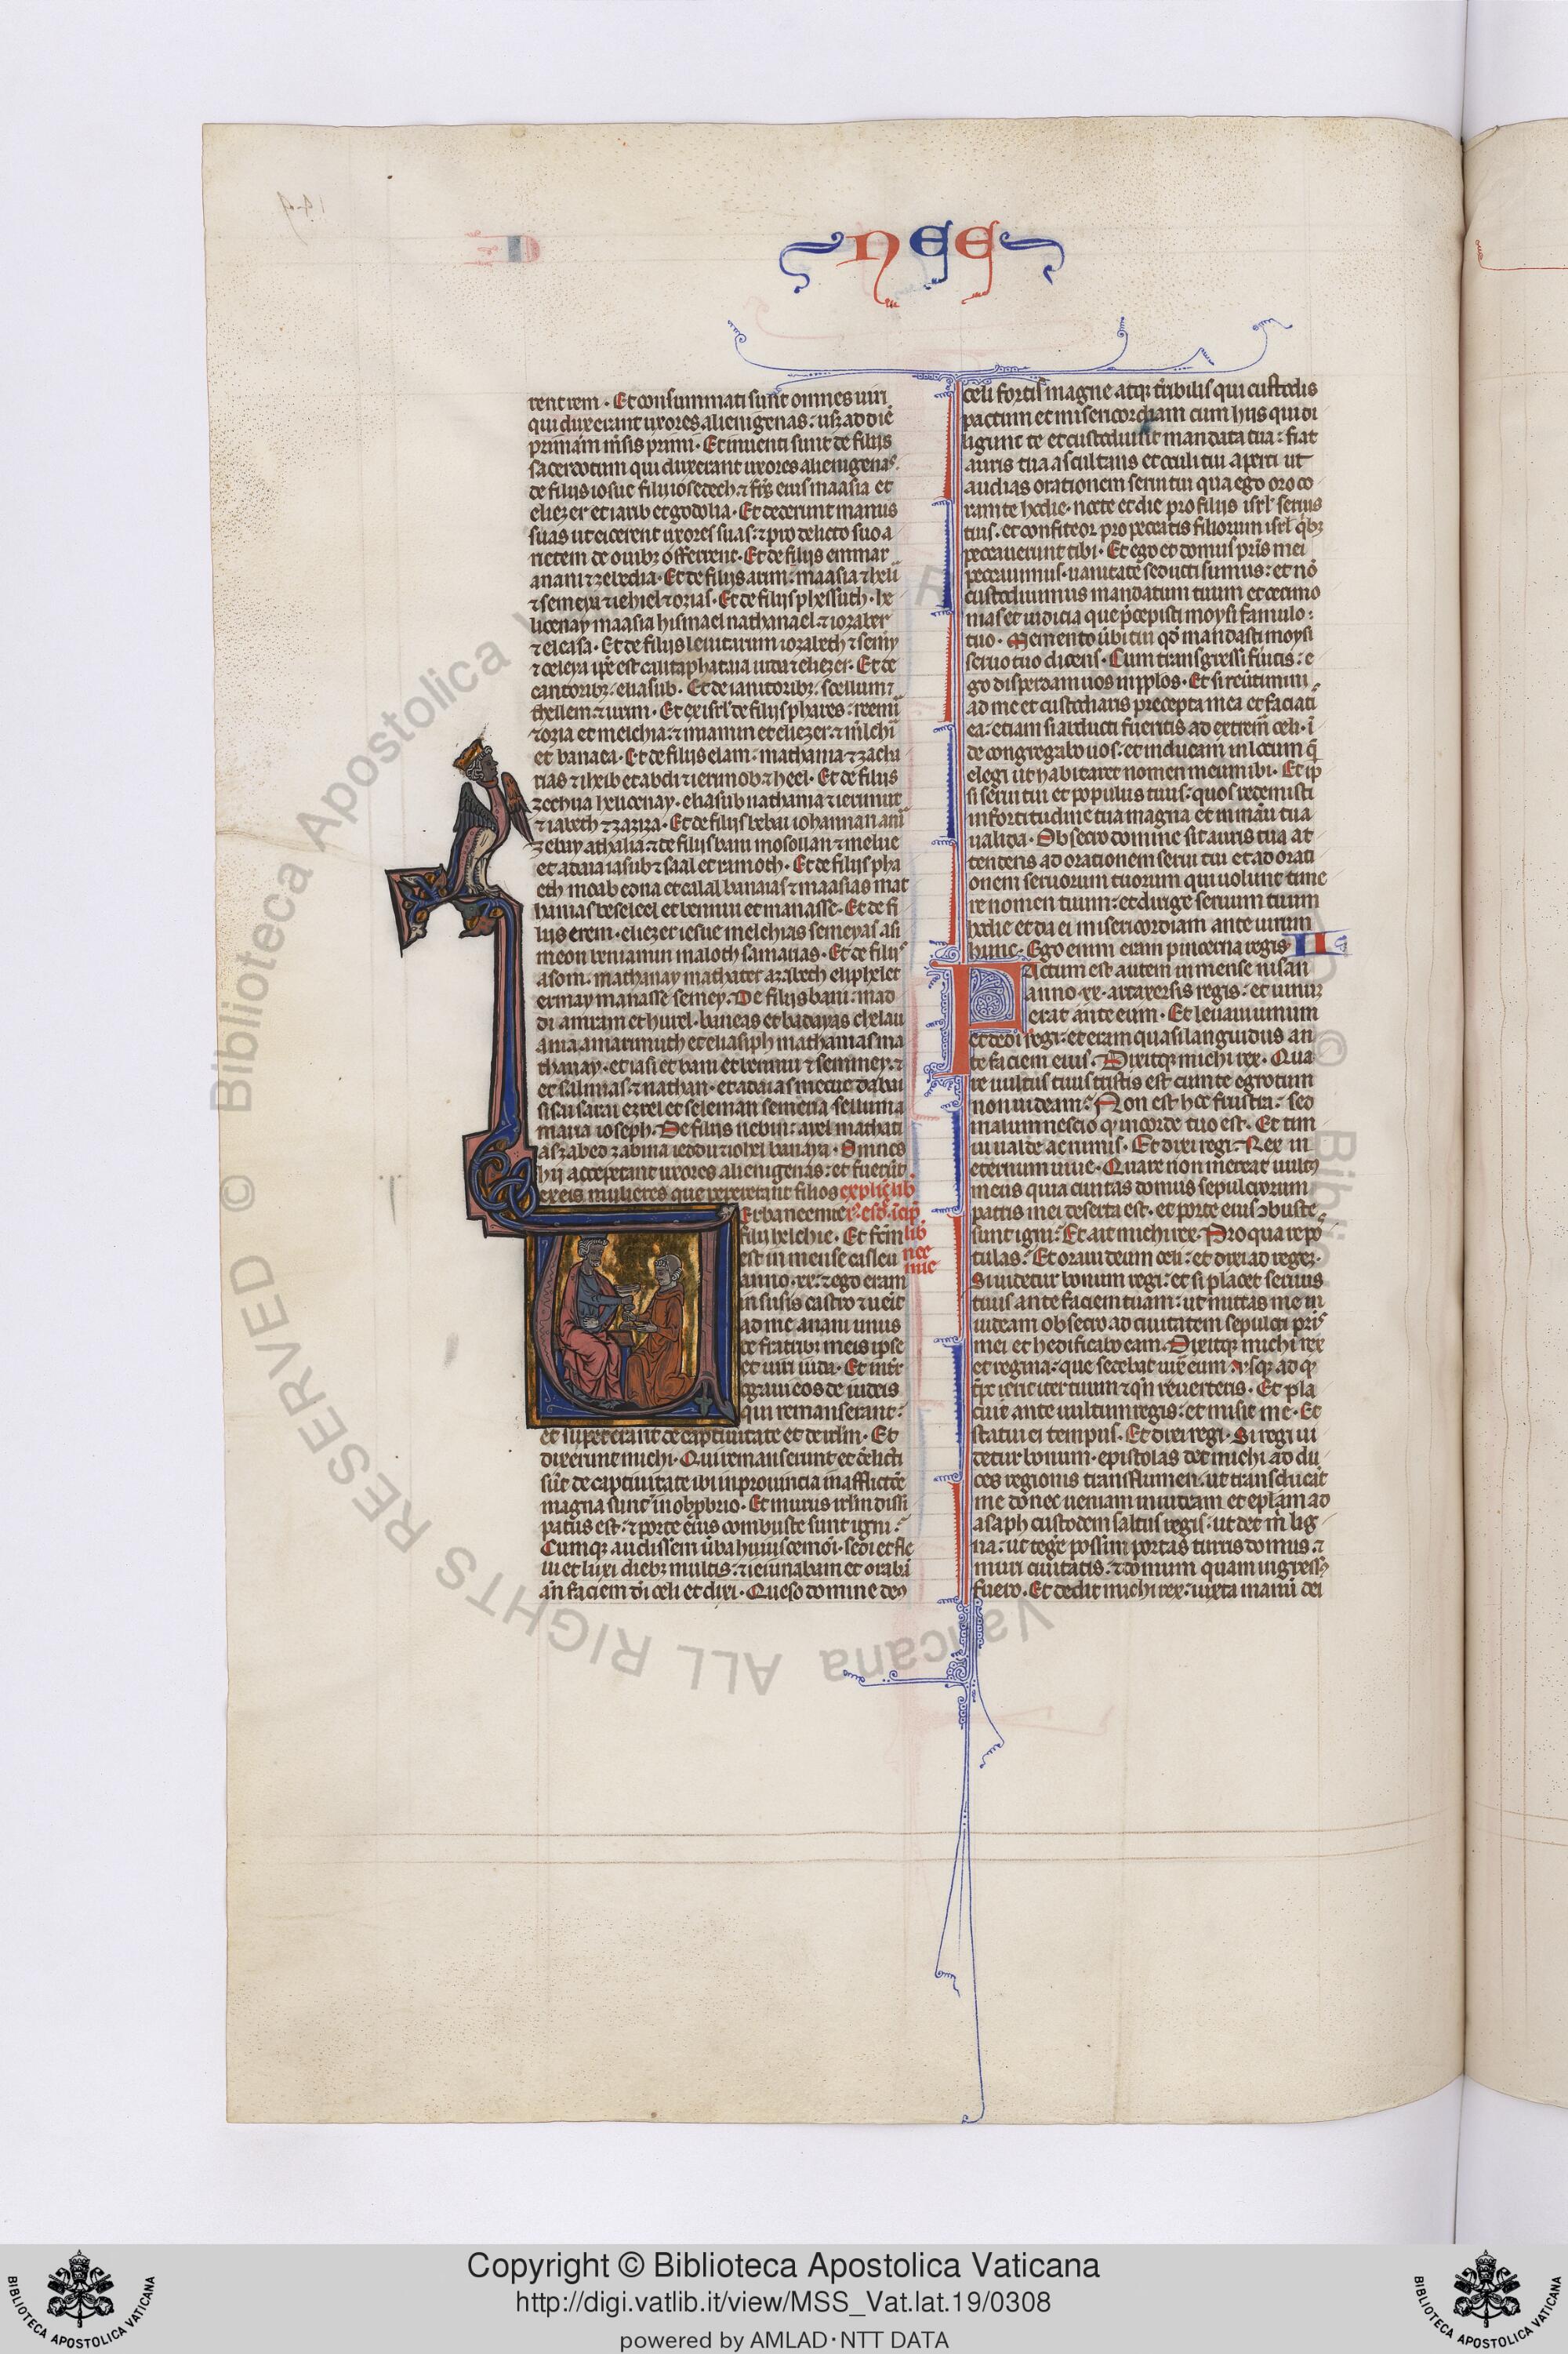 NEE
rent rem. Et consummati sunt omnes uiri
qui duxerant uxores alienigenas: usqꝫ ad diē
primam mēsis primi. Et inuenti sunt de filijs
sacerdotum qui duxerant uxores alienigenas.
de filijs iosue filij iosedech ⁊ fr̄s eius maasia et
eliezer et iarib et godolia. Et dederunt manus
suas ut eicerent uxores suas: ⁊ pro delicto suo a
rietem de ouibꝫ offerrent. Et de filijs emmar
anani ⁊ zebedia. Et de filijs arim: maasia ⁊ heli
⁊ semeya ⁊ iehiel ⁊ ozias. Et de filijs phessuth. he
licenay maasia hismael nathanael ⁊ iozabet
⁊ elcasa. Et de filijs leuitarum iozabeth ⁊ semy
Et de
cantoribꝫ: eliasub. Et de ianitoribꝫ: scellum ⁊
thellem ⁊ urim. Et ex isrl̄ de filijs phares: remi
⁊ ozia et melchia: ⁊ miamin et eliezer: ⁊ mlchi
et banaea. Et de filijs elam: mathania ⁊ zacha
rias ⁊ ihxib et abdi ⁊ ierimob ⁊ heel. Et de filijs
zechua helicenay. eliasub nathania ⁊ ierimut
⁊ iabeth ⁊ zaziza. Et de filijs bebai iohannan ani
zebay athalia: ⁊ de filijs bani mosollan ⁊ meluc
et adaia iasub ⁊ saal et ramoth. Et de filijs pha
eth moab edna et calal banaias ⁊ maasias mat
hanias beseleel et bennui et manasse. Et de fi
lijs erem. eliezer iesue melchias semeyas asi
meon beniamin maloch samarias. Et de filijs
asom: mathanay mathatet azabech eliphelet
ermay manasse semey. De filijs bani: mad
di amram et hurel. baneas et badayas chelau
ania amarimuth et eliasiph mathanias ma
thanay. et iasi et bani et bennui ⁊ semmey. ⁊
et salmias. ⁊ nathan. et adaias
sisai sarai ezrel et seleman semeria selluma
maria ioseph. De filijs nebui: ayel mathati
as zabed zabina ieddu ⁊ iohel banaya. Omnes
hij acceperant uxores alienigenas: et fuerūt
ex eis mulieres que pepererant filios explic̄ lib
Erba neemie
filij helchie. Et fcm̄ lib
est in mense casleu nee
anno .xx. ⁊ ego eram mie
in susis castro ⁊ ueit
ad me anani unus
de fratribꝫ meis ipse
et uiri iuda. Et inter
rogaui eos de iudeis
qui remanserant:
et supererant de captiuitate et de irlm̄. Et
dixerunt michi. Qui remanserunt et derelicti
sūt de captiuitate ibi in prouincia in afflictōe
magna sunt in obprobrio. Et murus irlm̄ dissi
patus est: ⁊ porte eius combuste sunt igni.
Cumqꝫ audissem uerba huiuscemōi. sedi et fle
ui et luxi diebꝫ multis: ⁊ ieiunabam et orabā
an̄ faciem dei celi et dixi. Queso domine deus
celi fortis magne atqꝫ tribilis qui custodis
pactum et misericordiam cum hijs qui di
ligunt te et custodiunt mandata tua: fiat
auris tua ascultans et oculi tui aperti ut
audias orationem serui tui qua ego oro co
ram te hodie. nocte et die pro filijs isrl̄ seruis
tuis. et confiteor pro peccatis filiorum isrl̄ qͥbꝫ
peccauerunt tibi. Et ego et domus pr̄is mei
peccauimus. uanitate seducti sumus: et nō
custodiuimus mandatum tuum et cerimo
nias et iudicia que p̄cepisti moysi famulo:
tuo. Memento ūbi tui qd̄ mandasti moysi
seruo tuo dicens. Cum transgressi fūitis: e
go disperdam uos in pplos. Et si reūtimini
ad me et custodiatis precepta mea et faciati
ea: etiam si abducti fueritis ad extremū celi. i
de congregabo uos: et inducam in locum qm̄
elegi ut habitaret nomen meum ibi. Et ip
si serui tui et populus tuus: quos redemisti
in fortitudine tua magna et in manu tua
ualida. Obsecro domine sit auris tua at
tendens ad orationem serui tui et ad orati
onem seruorum tuorum qui uolunt time
re nomen tuum: et dirige seruum tuum
hodie et da ei misericordiam ante uirum
hunc. Ego enim eram pincerna regis II
Factum est autem in mense nisan
anno .xx. artaxersis regis: et uinum
erat ante eum. Et leuaui uinum
et dedi regi: et eram quasi languidus an
te faciem eius. Dixitqꝫ michi rex. Qua
re uultus tuus tristis est cum te egrotum
non uideam? Non est hoc frustra: sed
malum nescio qd̄ in corde tuo est. Et tim
ui ualde ac nimis. Et dixi regi. Rex in
eternum uiue. Quare non mereat uultꝰ
meus quia ciuitas domus sepulcrorum
patris mei deserta est. et porte eius ↄbuste
sunt igni. Et ait michi rex. Pro qua re po
tulas? Et oraui deum celi: et dixi ad regem.
Si uidetur bonum regi: et si placet seruus
tuus ante faciem tuam: ut mittas me in
iudeam obsecro ad ciuitatem sepulcri pr̄is
mei et hedificabo eam. Dixitqꝫ michi rex
et regina: que sedebat iuxͣ eum. Usqꝫ ad qd̄
tp̄e
cuit ante uultum regis: et misit me. Et
statui ei tempus. Et dixi regi. Si regi ui
detur bonum. epistolas det michi ad du
ces regionis transflumen. ut transducāt
me donec ueniam in iudeam et eplam ad
asaph custodem saltus regis. ut det m̄ lig
na. ut tege possim portas turris domus. ⁊
muri ciuitatis. ⁊ domum quam ingressꝰ
fuero. Et dedit michi rex: iuxta manū dei
Copyright © Biblioteca Apostolica Vaticana
http://digi.vatlib.it/view/MSS_Vat.lat.19/0308
powered by AMLAD·NTT DATA
BIBLIOTECA APOSTOLICA VATICANA
BIBLIOTECA APOSTOLICA VATICANA
© Biblioteca Apostolica Vaticana ALL RIGHTS RESERVED